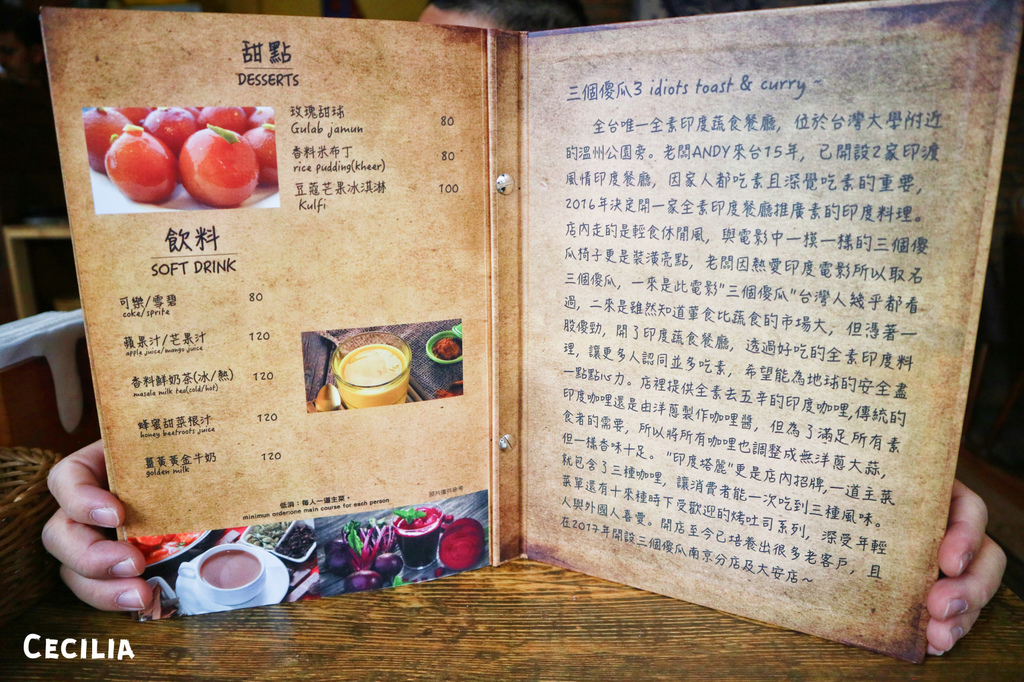 甜點
DESSERTS
玫瑰甜球 80
Gulab jamun
香料米布丁 80
rice pudding(kheer)
豆蔻芒果冰淇淋 100
Kulfi
飲料
SOFT DRINK
可樂/雪碧 80
coke/sprite
蘋果汁/芒果汁 120
apple juice/mango juice
香料鮮奶茶(冰/熱) 120
masala milk tea(cold/hot)
蜂蜜甜菜根汁 120
honey beetroots juice
薑黃黃金牛奶 120
golden milk
照片僅供參考
低消：每人一道主菜。
minimun order:one main course for each person
三個傻瓜3 idiots toast & curry~
全台唯一全素印度蔬食餐廳，位於台灣大學附近
的溫州公園旁。老闆ANDY來台15年，已開設2家印渡
風情印度餐廳，因家人都吃素且深覺吃素的重要，
2016年決定開一家全素印度餐廳推廣素的印度料理。
店內走的是輕食休閒風，與電影中一摸一樣的三個傻
瓜椅子更是裝潢亮點，老闆因熱愛印度電影所以取名
三個傻瓜，一來是此電影"三個傻瓜"台灣人幾乎都看
過，二來是雖然知道葷食比蔬食的市場大，但憑著一
股傻勁，開了印度蔬食餐廳，透過好吃的全素印度料
理，讓更多人認同並多吃素，希望能為地球的安全盡
一點點心力。店裡提供全素去五辛的印度咖哩,傳統的
印度咖哩還是由洋蔥製作咖哩醬，但為了滿足所有素
食者的需要，所以將所有咖哩也調整成無洋蔥大蒜，
但一樣香味十足。"印度塔麗"更是店內招牌,一道主菜
就包含了三種咖哩，讓消費者能一次吃到三種風味。
菜單還有十來種時下受歡迎的烤吐司系列，深受年輕
人與外國人喜愛。開店至今已培養出很多老客戶，且
在2017年開設三個傻瓜南京分店及大安店~
CECILIA